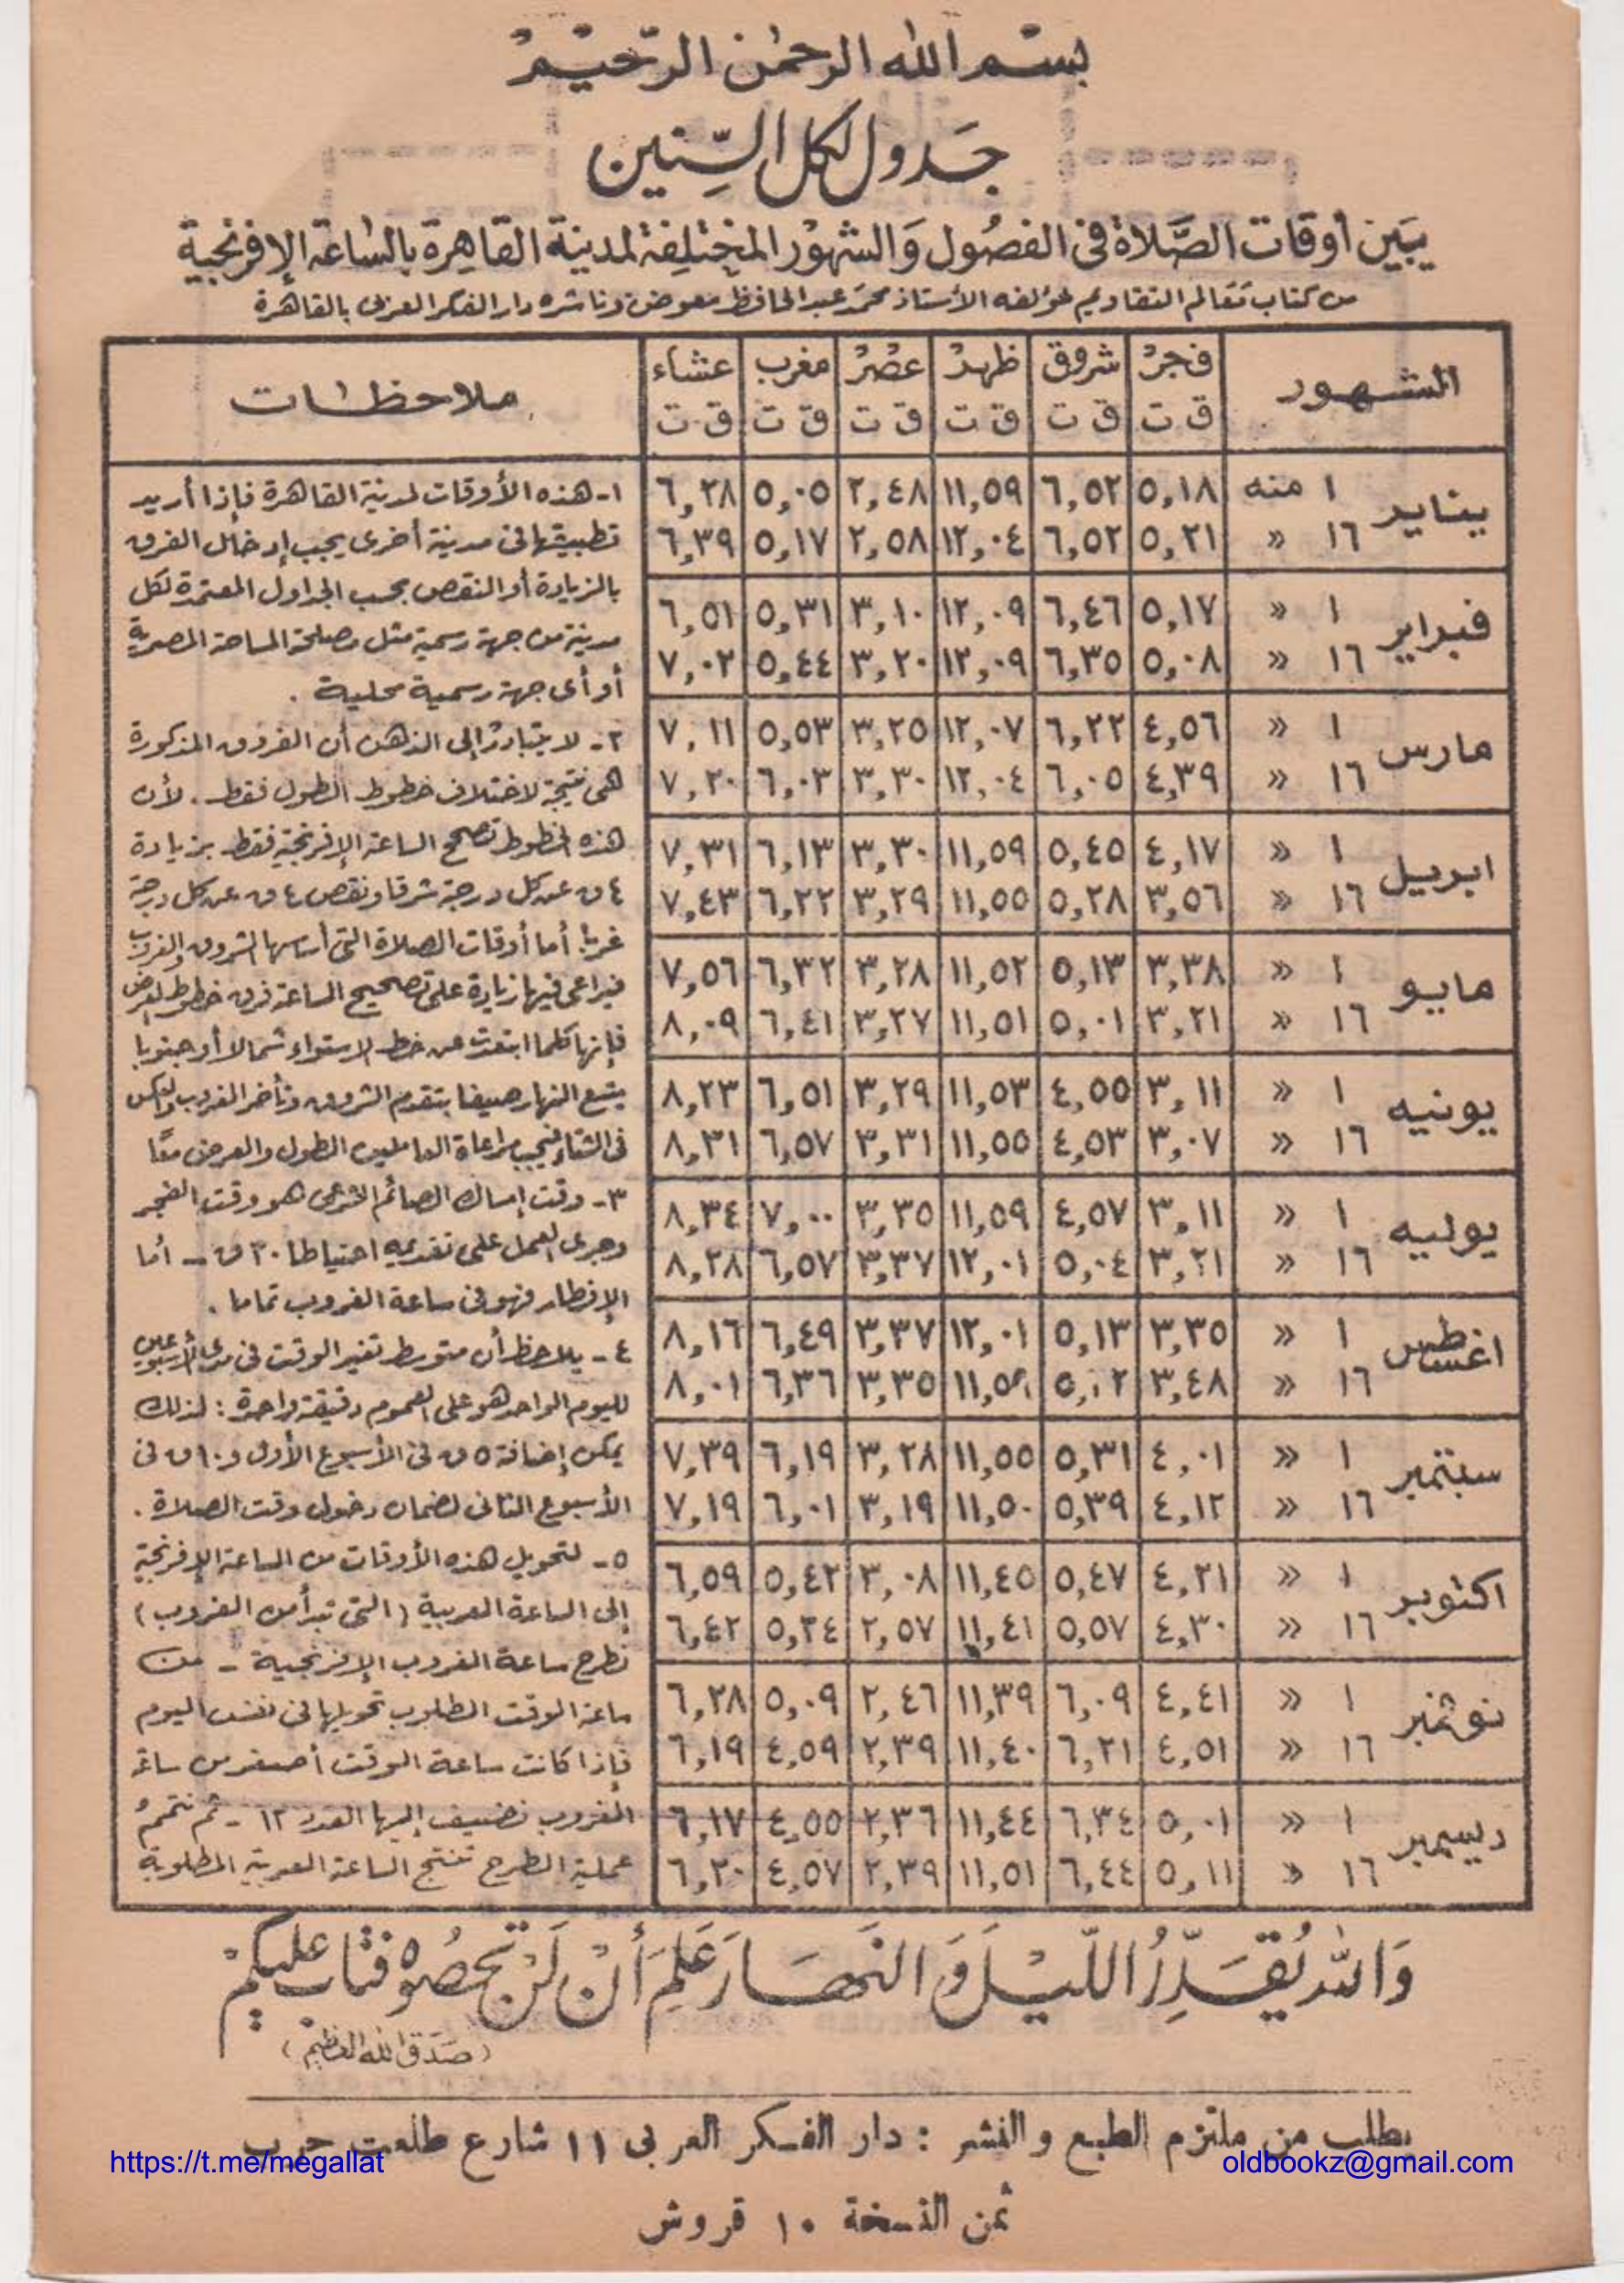 بسم الله الرحمن الرحيم
جَدول لكل السِّنين
يبَين أوقات الصَّلاة فى الفصُول وَالشهوُر المختلِفة لمدينة القاهِرة بالسَّاعة الإفرنجية
من كتاب تقالم التقاديم لمؤلفه الأستاذ محمد عبد الحافظ معوض وناشره دار الفكر العربى بالقاهرة
الشهور فجر شروق ظهر عصر مغرب عشاء ملاحظات
ق ت ق ت ق ت ق ت ق ت ق ت
يناير ١ منه ٥,١٨ ٦,٥٢ ١١,٥٩ ٢,٤٨ ٥,٠٥ ٦,٢٨
١٦ » ٥,٢١ ٦,٥٢ ١٢,٠٤ ٢,٥٨ ٥,١٧ ٦,٣٩
فبراير ١ » ٥,١٧ ٦,٤٦ ١٢,٠٩ ٣,١٠ ٥,٣١ ٦,٥١
١٦ » ٥,٠٨ ٦,٣٥ ١٢,٠٩ ٣,٢٠ ٥,٤٤ ٧,٠٢
مارس ١ » ٤,٥٦ ٦,٢٢ ١٢,٠٧ ٣,٢٥ ٥,٥٣ ٧,١١
١٦ » ٤,٣٩ ٦,٠٥ ١٢,٠٤ ٣,٣٠ ٦,٠٣ ٧,٢٠
ابريل ١ » ٤,١٧ ٥,٤٥ ١١,٥٩ ٣,٣٠ ٦,١٣ ٧,٣١
١٦ » ٣,٥٦ ٥,٢٨ ١١,٥٥ ٣,٢٩ ٦,٢٢ ٧,٤٣
مايو ١ » ٣,٣٨ ٥,١٣ ١١,٥٢ ٣,٢٨ ٦,٣٢ ٧,٥٦
١٦ » ٣,٢١ ٥,٠١ ١١,٥١ ٣,٢٧ ٦,٤١ ٨,٠٩
يونيه ١ » ٣,١١ ٤,٥٥ ١١,٥٣ ٣,٢٩ ٦,٥١ ٨,٢٣
١٦ » ٣,٠٧ ٤,٥٣ ١١,٥٥ ٣,٣١ ٦,٥٧ ٨,٣١
يوليه ١ » ٣,١١ ٤,٥٧ ١١,٥٩ ٣,٣٥ ٧,٠٠ ٨,٣٤
١٦ » ٣,٢١ ٥,٠٤ ١٢,٠١ ٣,٣٧ ٦,٥٧ ٨,٢٨
اغسطس ١ » ٣,٣٥ ٥,١٣ ١٢,٠١ ٣,٣٧ ٦,٤٩ ٨,١٦
١٦ » ٣,٤٨ ٣,٣٥ ٦,٣٦ ٨,٠١
سبتمبر ١ » ٤,٠١ ٥,٣١ ١١,٥٥ ٣,٢٨ ٦,١٩ ٧,٣٩
١٦ » ٤,١٢ ٥,٣٩ ١١,٥٠ ٣,١٩ ٦,٠١ ٧,١٩
اكتوبر ١ » ٤,٢١ ٥,٤٧ ١١,٤٥ ٣,٠٨ ٥,٤٢ ٦,٥٩
١٦ » ٤,٣٠ ٥,٥٧ ١١,٤١ ٢,٥٧ ٥,٢٤ ٦,٤٢
نوفمبر ١ » ٤,٤١ ٦,٠٩ ١١,٣٩ ٢,٤٦ ٥,٠٩ ٦,٢٨
١٦ » ٤,٥١ ٦,٢١ ١١,٤٠ ٢,٣٩ ٤,٥٩ ٦,١٩
ديسمبر ١ » ٥,٠١ ٦,٣٤ ١١,٤٤ ٢,٣٦ ٤,٥٥ ٦,١٧
١٦ » ٥,١١ ٦,٤٤ ١١,٥١ ٢,٣٩ ٤,٥٧ ٦,٢٠
١- هذه الأوقات لمدينة القاهرة فإذا أريد
تطبيقها فى مدينة أخرى يجب إدخال الفرق
بالزيادة أو النقص بحسب الجداول المعتمدة لكل
مدينة من جهة رسمية مثل مصلحة المساحة المصرية
أو أى جهة رسمية محلية .
٢- لا يتبادر إلى الذهن أن الفروق المذكورة
هى نتيجة لاختلاف خطوط الطول فقط . لأن
هذه الخطوط تصحح الساعة الإفرنجية فقط بزيادة
٤ ق عن كل درجة شرقا ونقص ٤ ق عن كل درجة
غربا. أما أوقات الصلاة التى أساسها الشروق والغروب
فيراعى فيها زيادة على تصحيح الساعة فرق خطوط العرض
فإنها كلما ابتعدت عن خط الاستواء شمالا أو جنوبا
يتسع النهار صيفا بتقدم الشروق وتأخر الغروب والعكس
فى الشتاء فيجب مراعاة العاملين الطول والعرض معًا
٣- وقت إمساك الصائم الشرعى هو وقت الفجر
وجرى العمل على تقديمه احتياطا ٢٠ ق - أما
الإفطار فهو فى ساعة الغروب تماما .
٤- يلاحظ أن متوسط تغير الوقت فى مدى الأسبوعين
لليوم الواحد هو على العموم دقيقة واحدة : لذلك
يمكن إضافة ٥ ق فى الأسبوع الأول و ١٠ ق فى
الأسبوع الثانى لضمان دخول وقت الصلاة .
٥- لتحويل هذه الأوقات من الساعة الإفرنجية
إلى الساعة العربية ( التى تبدأ من الغروب )
نطرح ساعة الغروب الإفرنجية - من
ساعة الوقت المطلوب تحويلها فى نفس اليوم
فإذا كانت ساعة الوقت أصغر من ساعة
الغروب نضيف إليها العدد ١٢ - ثم نتمم
عملية الطرح تنتج الساعة العربية المطلوبة
وَاللهُ يُقَدِّرُ اللّيْلَ وَالنَّهَارَ عَلِمَ أَنْ لَنْ تُحْصُوهُ فَتَابَ عَليكُمْ
( صَدَق الله العَظيم )
يطلب من ملتزم الطبع والنشر : دار الفكر العربى ١١ شارع طلعت حرب
https://t.me/megallat
oldbookz@gmail.com
ثمن النسخة ١٠ قروش